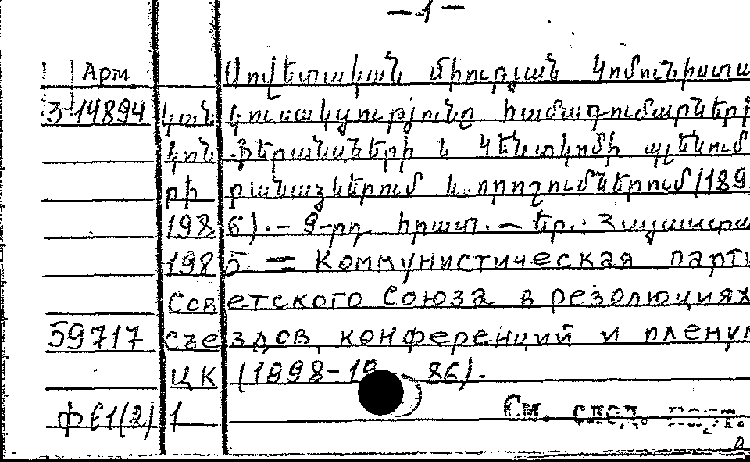 — 1 —
Арм Սովետական միության կոմունիստա
3-14894 կան կուսակցությունը համագումարների
կոն ֆերանսների և Կենտկոմի պլենում
րի բանաձևերում և որոշումներում (189
198 6). – 9-րդ հրատ. – Եր.: Հայաստան
198 5 = Коммунистическая парти
Сов етского Союза в резолюциях
59717 съе здов, конференций и плену
ЦК (1898-19 86).
ф Е1(2) 1 См. след.